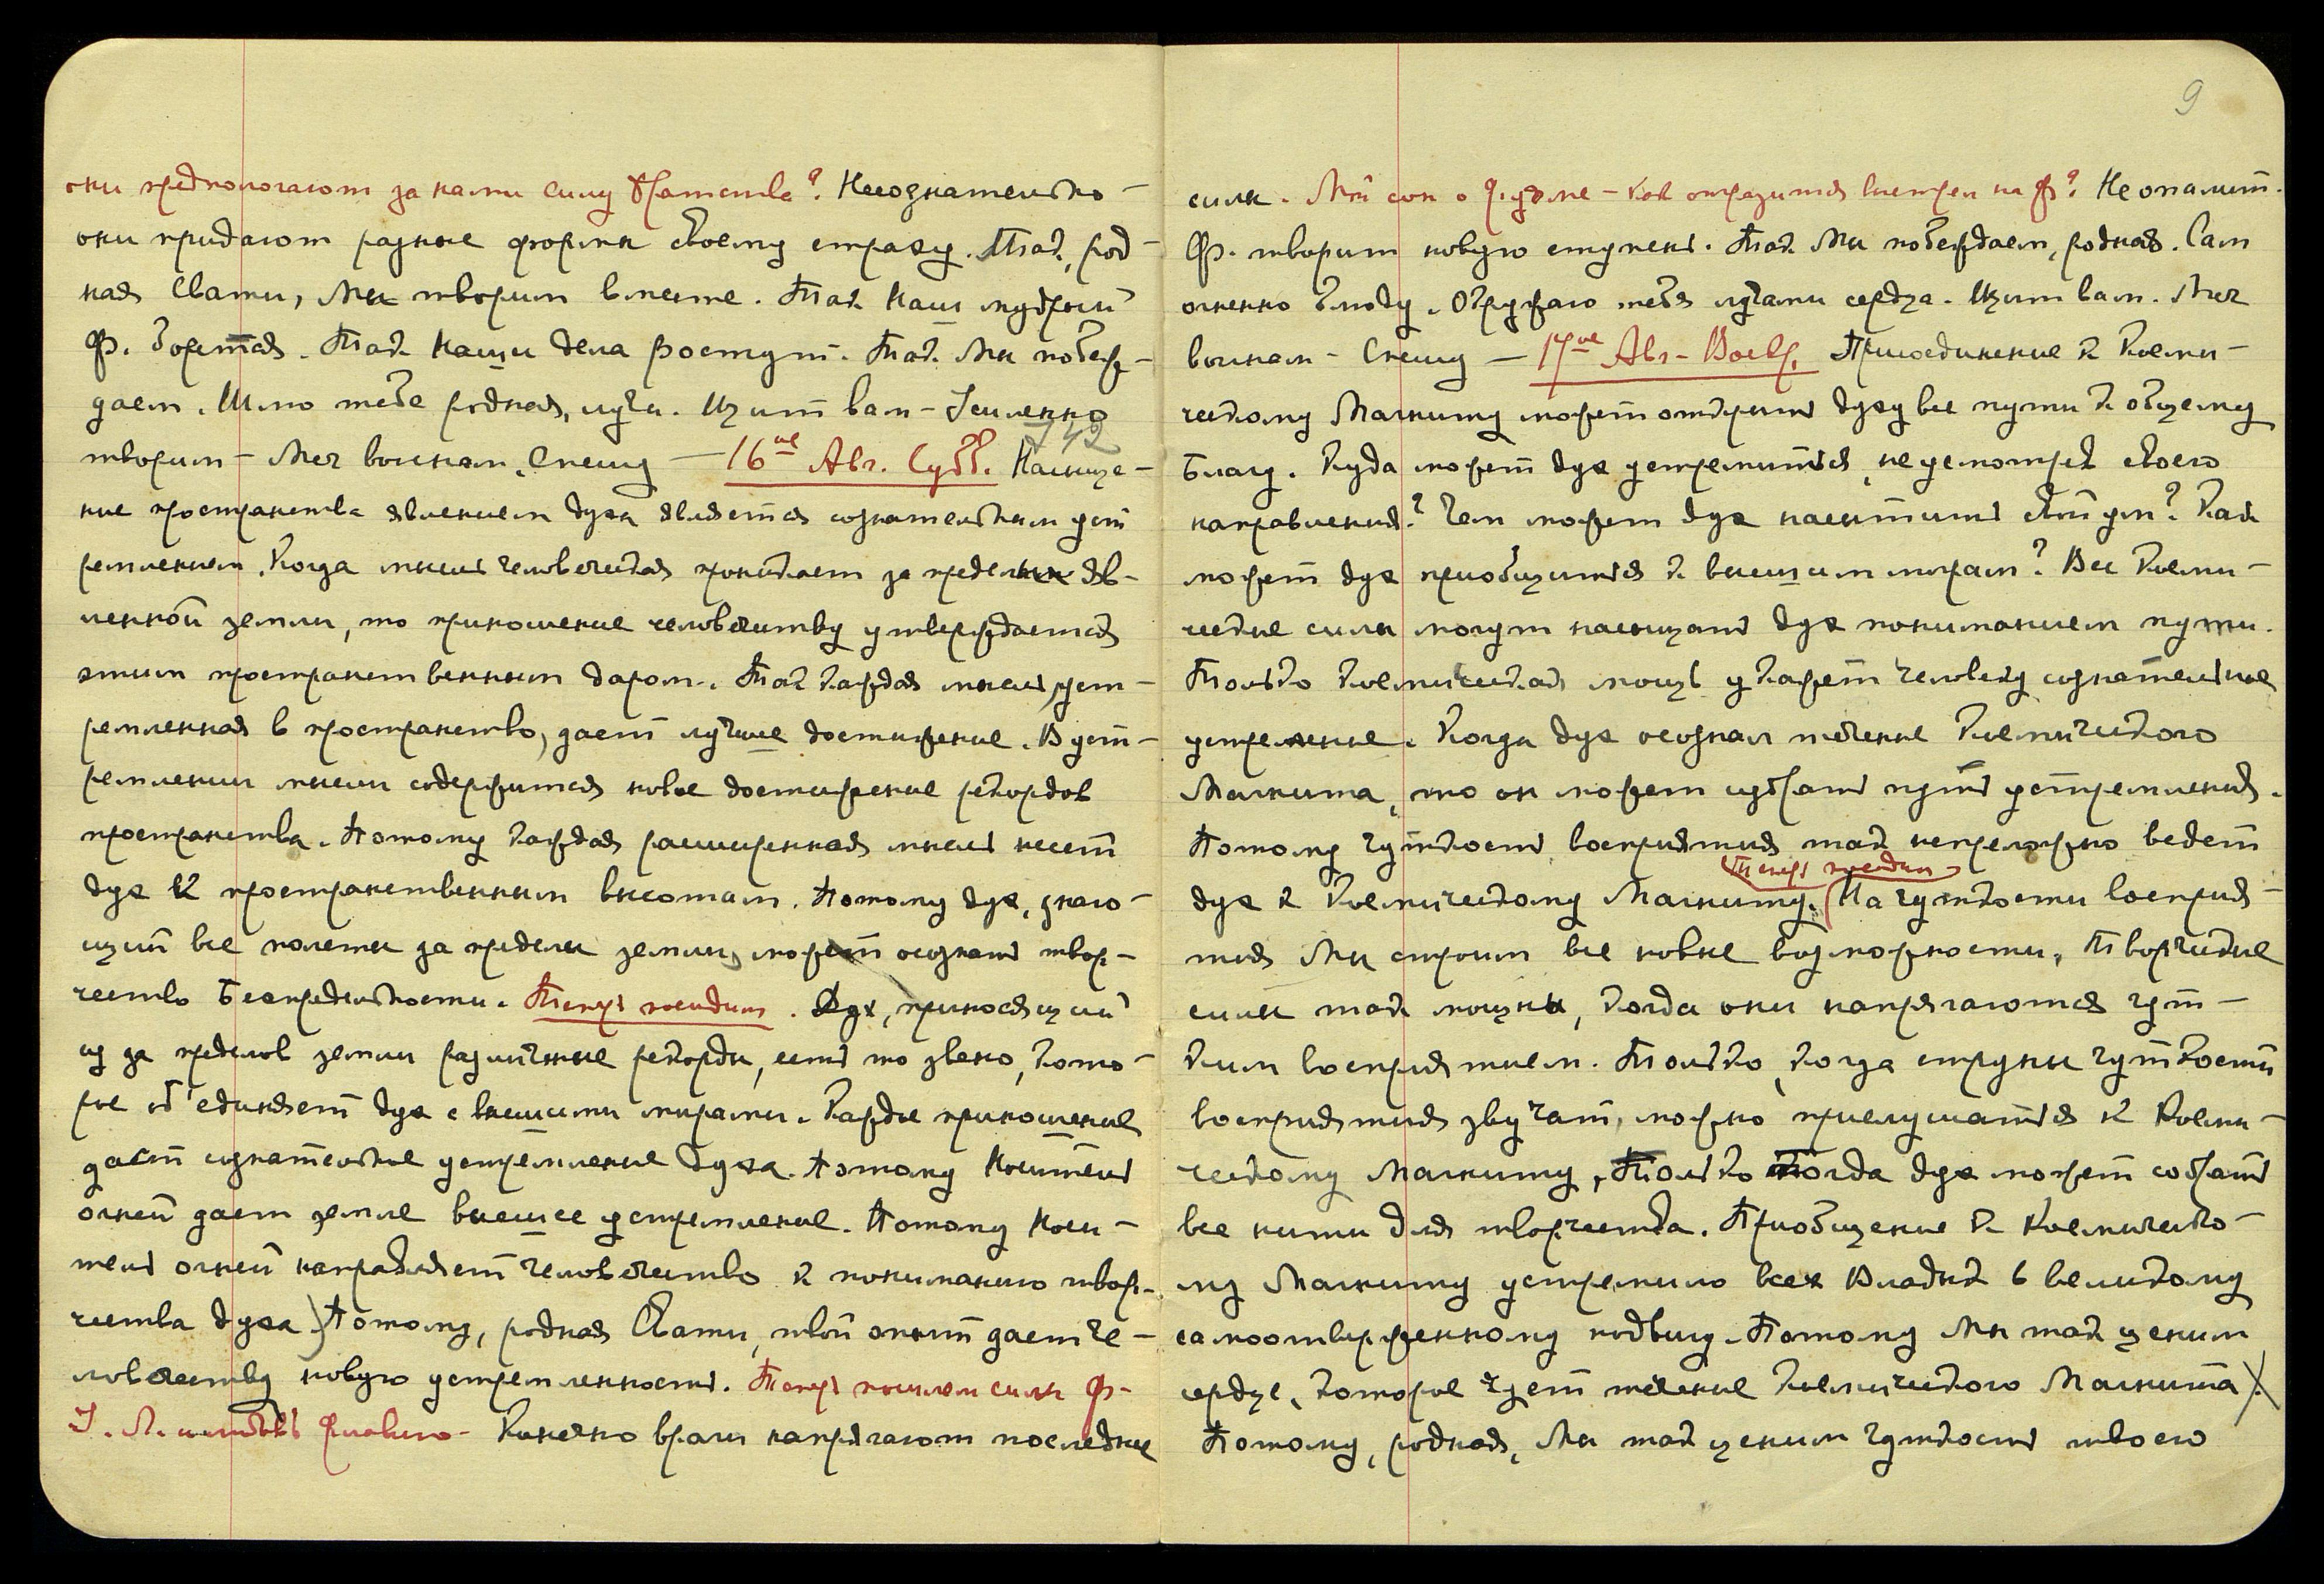 они предпологают за нами силу Братства? Несознательно –
они придают разные формы своему страху. Так, род –
ная Свати, Мы творим вместе. Так Наш мудрый
Ф. борется. Так Наши дела растут. Так Мы побеж –
даем. Шлю тебе родная, лучи. Щит вам – Усиленно
творим – Меч воинам. Спешу – 16ое Авг. Субб. Насыще –
742
ние пространства явлением духа является сознательным уст
ремлением. Когда мысль человеческая проникает за пределы яв –
ленной земли, то приношение человечеству утверждается
этим пространственным даром. Так каждая мысль, уст –
ремленная в пространство, дает лучшие достижение. В уст –
ремлении мысли содержится новое достижение рекордов
пространства. Потому каждая расширенная мысль несет
дух к пространственным высотам. Потому дух, знаю –
щий все полеты за пределы земли, может осознать твор –
чество Беспредельности. Теперь поедим. Дух, приносящий
из за пределов земли различные рекорды, есть то звено, кото –
рое об'единяет дух с высшими мирами. Каждое приношение
дает сознательное устремление духа. Потому Носитель
огней дает земле высшее устремление. Потому Носи –
тель огней направляет человечество к пониманию твор –
чества духа) Потому, родная Свати, твой опыт дает че –
ловечеству новую устремленность. Теперь пошлем силы Ф.
У. Л. и Флавию – Конечно враги напрягают последние
9
силы. Мой сон о – как отразится на Ф? Не опалит.
Ф. творит новую ступень. Так Мы побеждаем, родная. Сам
огненно блюду. Окружаю тебя лучами сердца. Щит вам. Меч
воинам – Спешу – 17ое Авг – Воскр. Присоединение к Косми –
ческому Магниту может открыть духу все пути к общему
Благу. Куда может дух устремиться, не усмотрев своего
направления? Чем может дух насытить свой ум? Как
может дух приобщиться к высшим мирам? Все Косми –
ческие силы могут насыщать дух пониманием пути.
Только Космическая мощь укажет человеку сознательное
устремление. Когда дух осознал течение Космического
Магнита, то он может избрать путь устремления.
Потому чуткость восприятия так непреложно ведет
Теперь поедим
дух к Космическому Магниту. (На чуткости восприя –
тия Мы строим все новые возможности. Творческие
силы так мощны, когда они напрягаются чут –
ким восприятием. Только, когда струны чуткости
восприятия звучат, можно прислушаться к Косми –
ческому Магниту, Только тогда дух может собрать
все нити для творчества. Приобщение к Космическо –
му Магниту устремило всех Владык к великому
самоотверженному подвигу. Потому Мы так ценим
сердце, которое чует течение Космического Магнита).
Потому, родная, Мы так ценим чуткость твоего